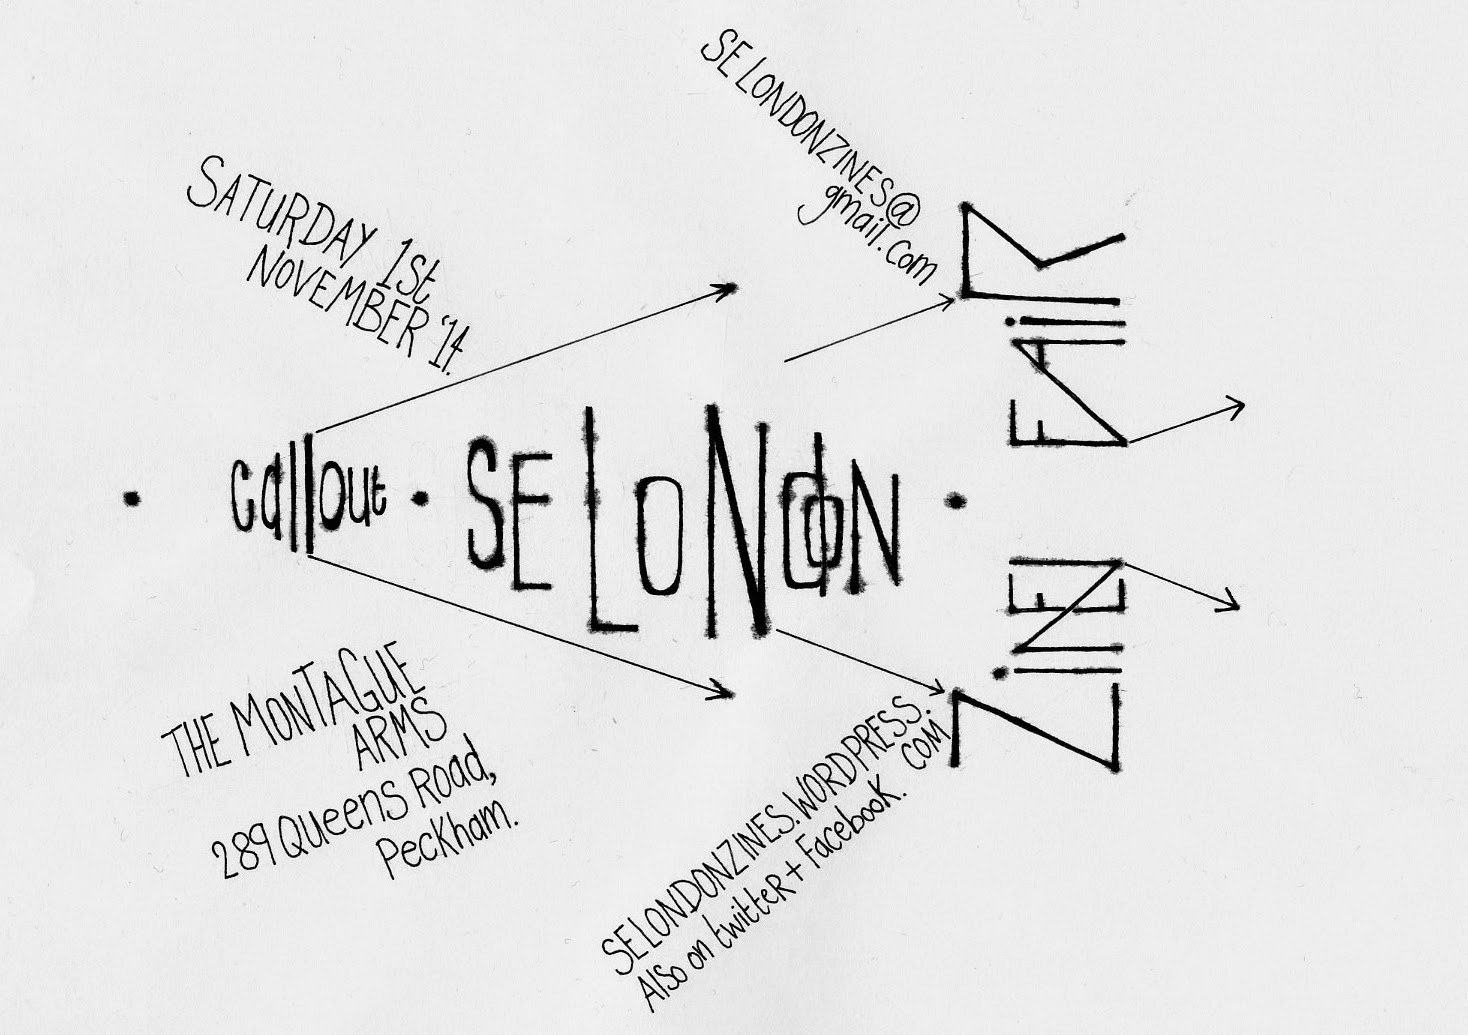 SATURDAY 1st
NOVEMBER '14.
SELONDONZINES@
gmail.com
callout · SE LONDON ·
ZINE FAIR
THE MONTAGUE
ARMS
289 Queens Road,
Peckham.
SELONDONZINES.WORDPRESS.
COM
Also on twitteR + Facebook.